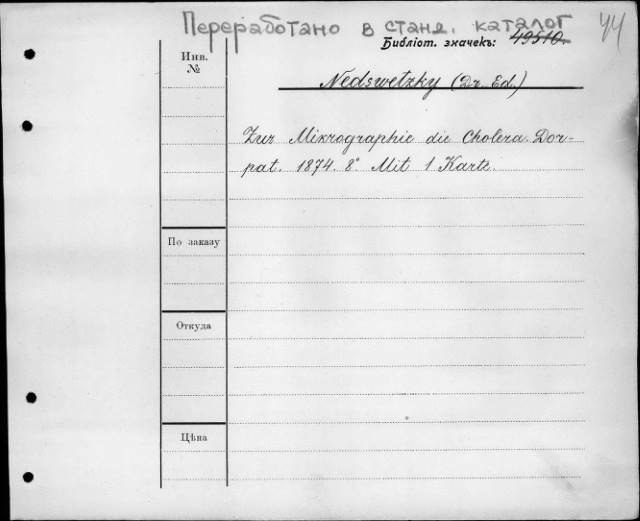 Переработано в станд. каталог
44
Библіот. значекъ: 49510.
Инв.
№
Nedswetzky (Dr. Ed.)
Zur Mikrographie die Cholera. Dor-
pat. 1874. 8° Mit 1 Karte.
По заказу
Откуда
Цѣна